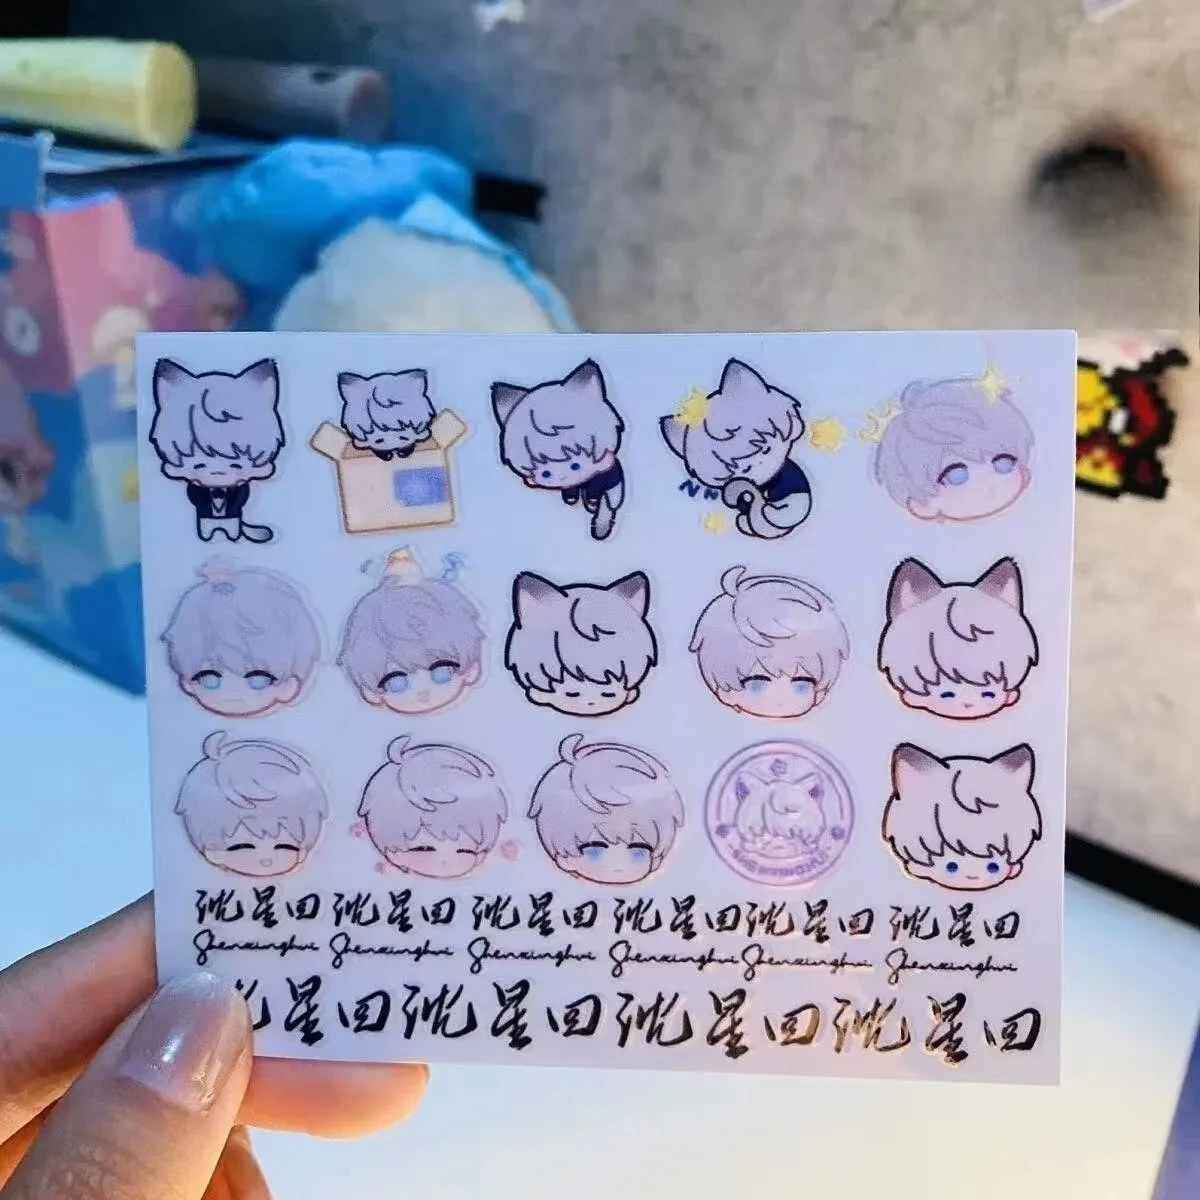 沈星回 沈星回 沈星回 沈星回 沈星回 沈星回
Shenxinghui Shenxinghui Shenxinghui Shenxinghui Shenxinghui Shenxinghui
沈星回 沈星回 沈星回 沈星回